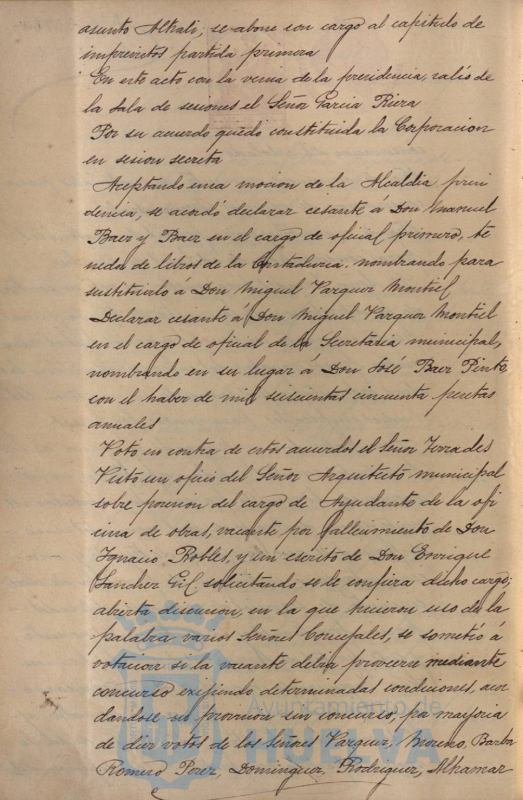 asunto Alkali; se abone con cargo al capitulo de
imprevistos partida primera
En este acto con la venia de la presidencia, salió de
la Sala de sesiones el Señor Garcia Riera
Por su acuerdo quedo constituida la Corporacion
en sesion secreta
Aceptando una mocion de la Alcaldia presi
dencia, se acordó declarar cesante á Don Manuel
Baez y Baez en el cargo de oficial primero, te
nedor de libros de la Contaduria, nombrando para
sustituirlo á Don Miguel Vazquez Montiel
Declarar cesante á Don Miguel Vazquez Montiel
en el cargo de oficial de la Secretaria municipal,
nombrando en su lugar á Don José Baez Pinto
con el haber de mil seiscientas cincuenta pesetas
anuales
Votó en contra de estos acuerdos el Señor Terrades
Visto un oficio del Señor Arquitecto municipal
sobre provision del cargo de Ayudante de la ofi
cina de obras, vacante por fallecimiento de Don
Ignacio Robles, y un escrito de Don Enrique
Sanchez Gil solicitando se le confiera dicho cargo;
abierta discusion, en la que hicieron uso de la
palabra varios Señores Concejales, se sometió á
votacion si la vacante debia proveerse mediante
concurso exijiendo determinadas condiciones, acor
dandose su provision sin concurso, por mayoria
de diez votos de los señores Vazquez, Moreno, Barba
Romero Perez, Dominguez, Rodriguez, Alkamar
Ayuntamiento de
HUELVA